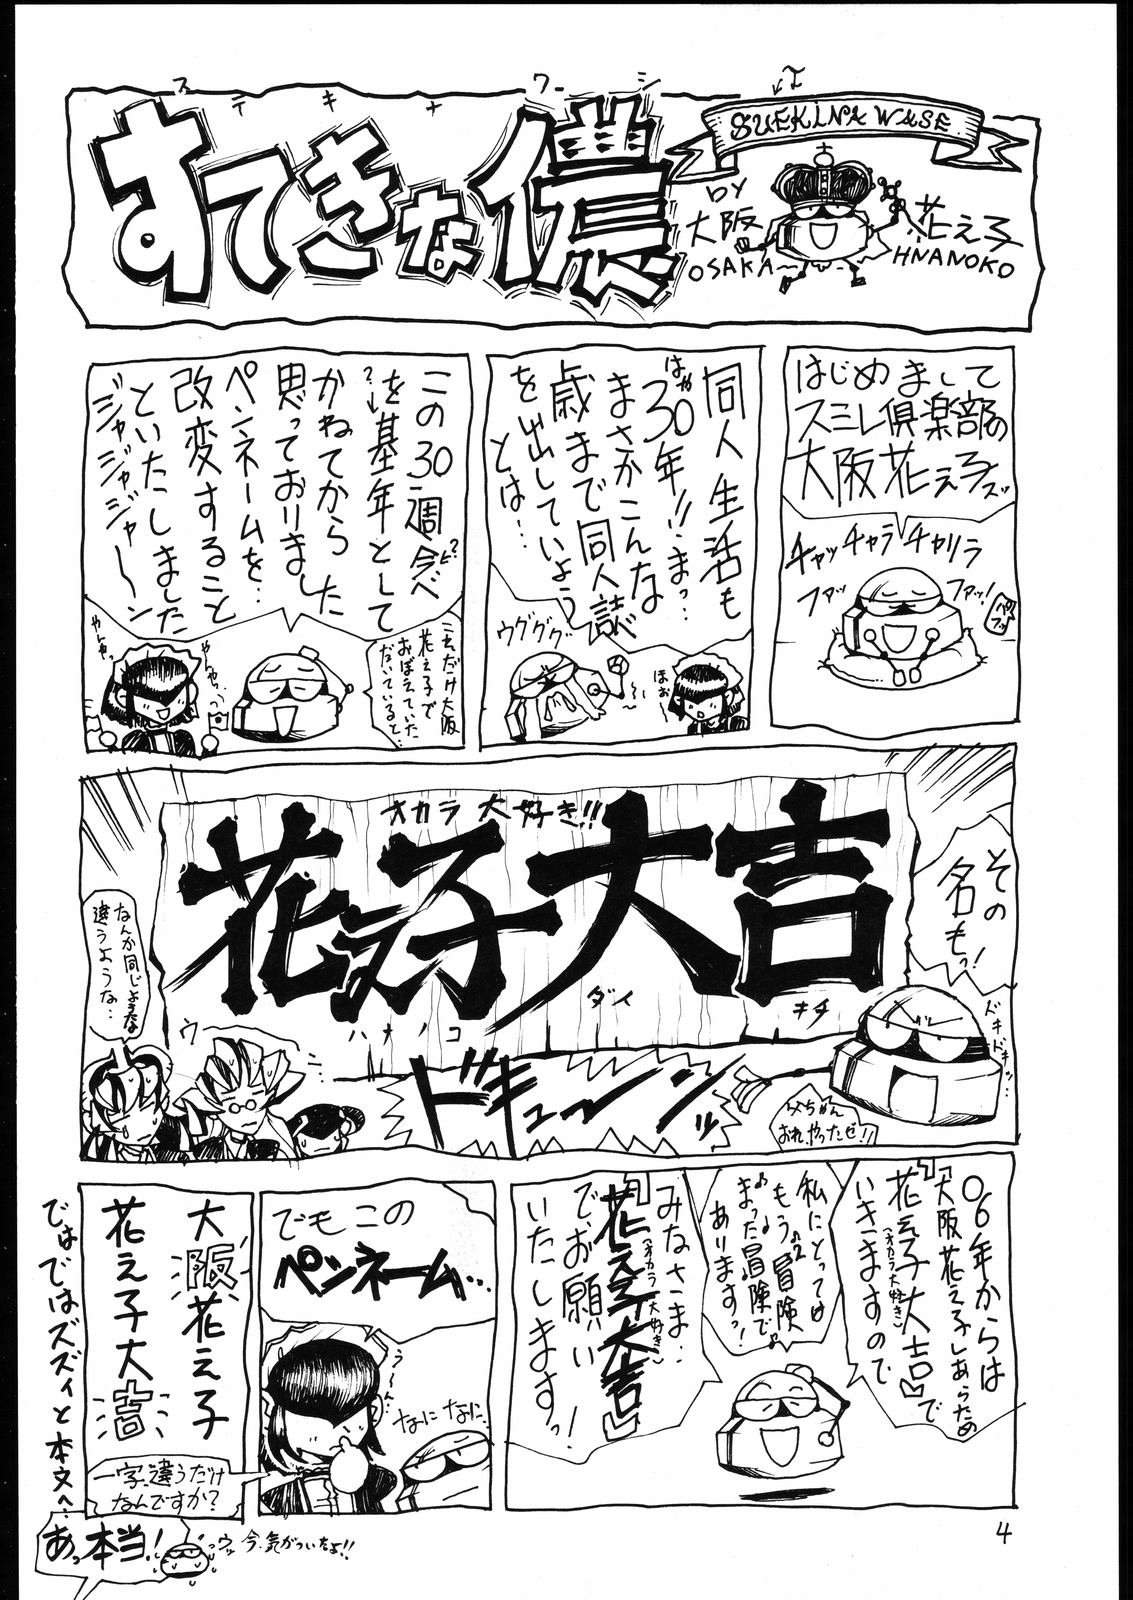 ステキナワーシ
すてきな儂
SUEKINA WASE
BY
大阪
花え子
OSAKA〜
HNANOKO
はじめまして
スミレ倶楽部の
大阪花え子ズ
チャッチャラチャリラ
ファッファッ!
同人生活も
はや
30年!!まっ…
まさかこんな
歳まで同人誌
を出していよう
とは…
ウグググ
ほお
この30週今べ
?ビ?
を基年として
?
かねてから
思っておりました
ペンネームを…
改変すること
といたしました
ジャジャジャジャーン
こえだけ大阪
花え子で
おぼえていた
だいていると…
やんやっ
やんやっ
その
名もっ!
オカラ大好き!!
花え子大吉
ハナノコ
ダイ
キチ
なんか同じような
違うような…
ウ
ニ
ドキドキッ…
ドキューーンッ
父ちゃん
おれ、やったぜ!!
06年からは
『大阪花え子』あらため
『花え子大吉』で
(オカラ大好き)
いきますので
私にとっては
もう冒険
まった冒険で
ありますっ!
みなさま…
『花え子大吉』
(オカラ大好き)
でお願い
いたしますっ!
でもこの
ペンネーム…
うーん…
なになに
大阪花え子
花え子大吉
一字違うだけ
なんですか?
ではではズズィと本文へ…
あっ本当!
ウッ
今、気がついたよ!!
4